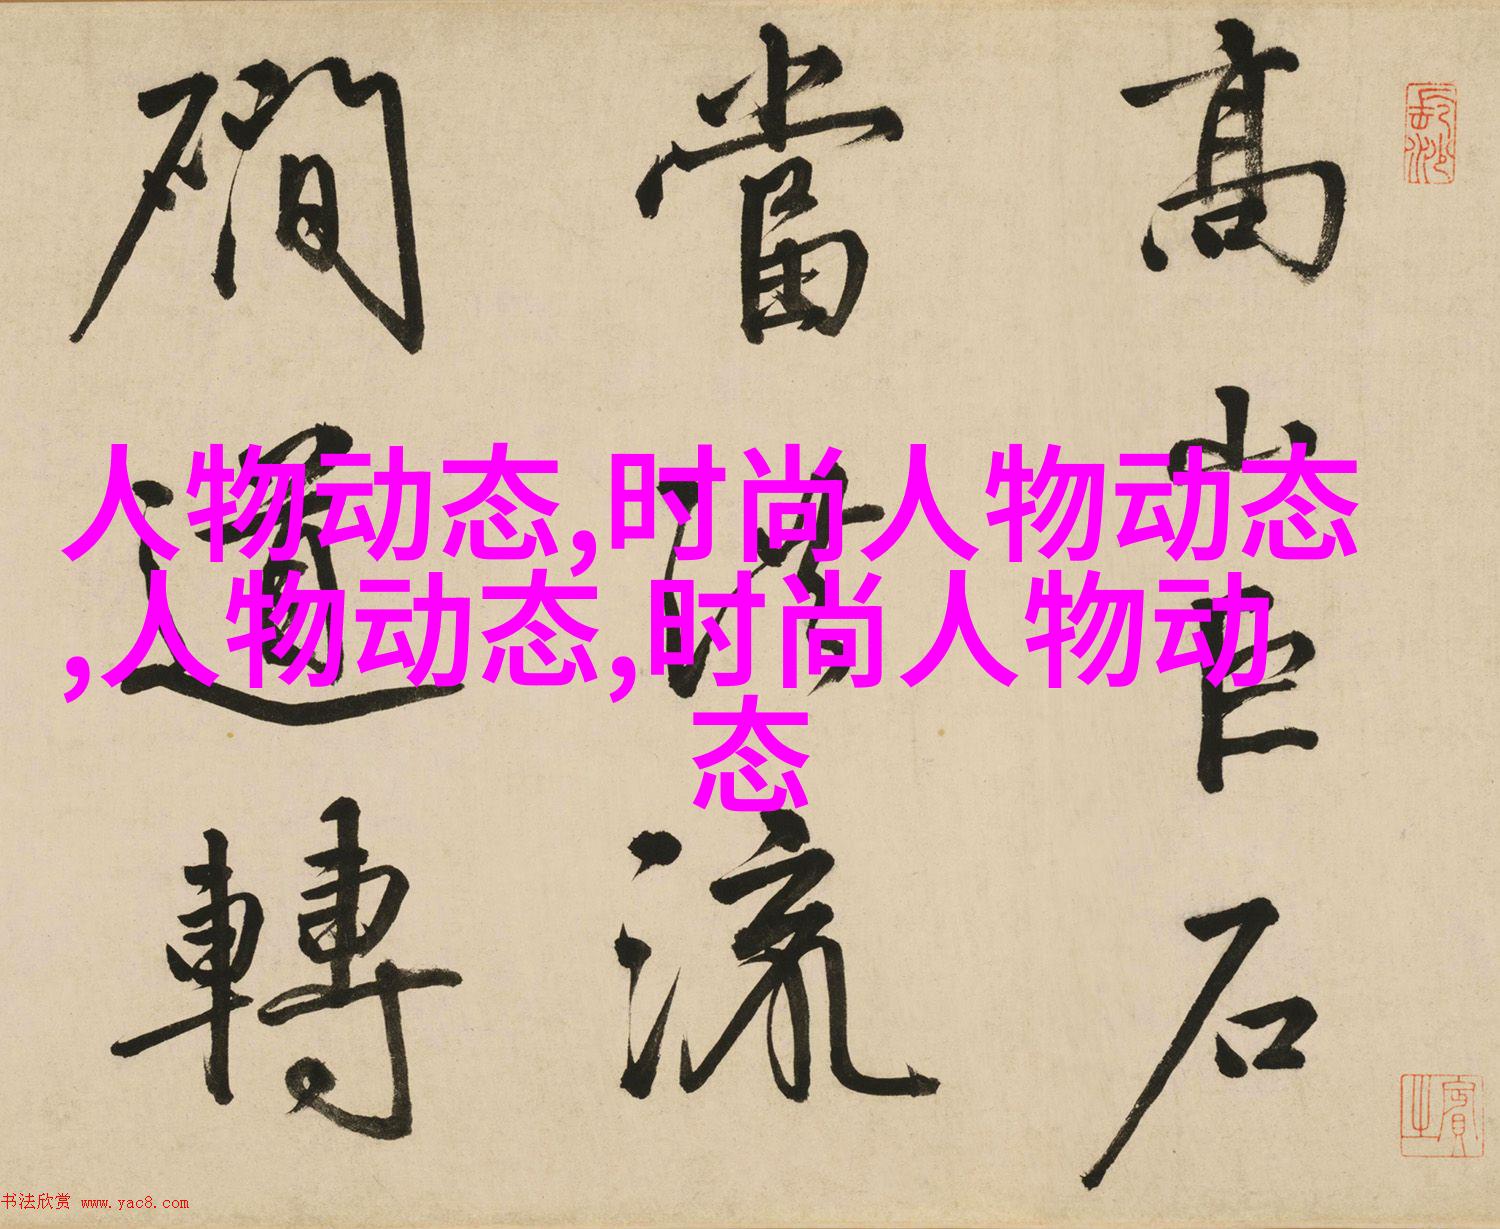 高岩石
當洪流
磵道轉
人物动态,时尚人物动态
,人物动态,时尚人物动
态
长沙
书法欣赏 www.yac8.com